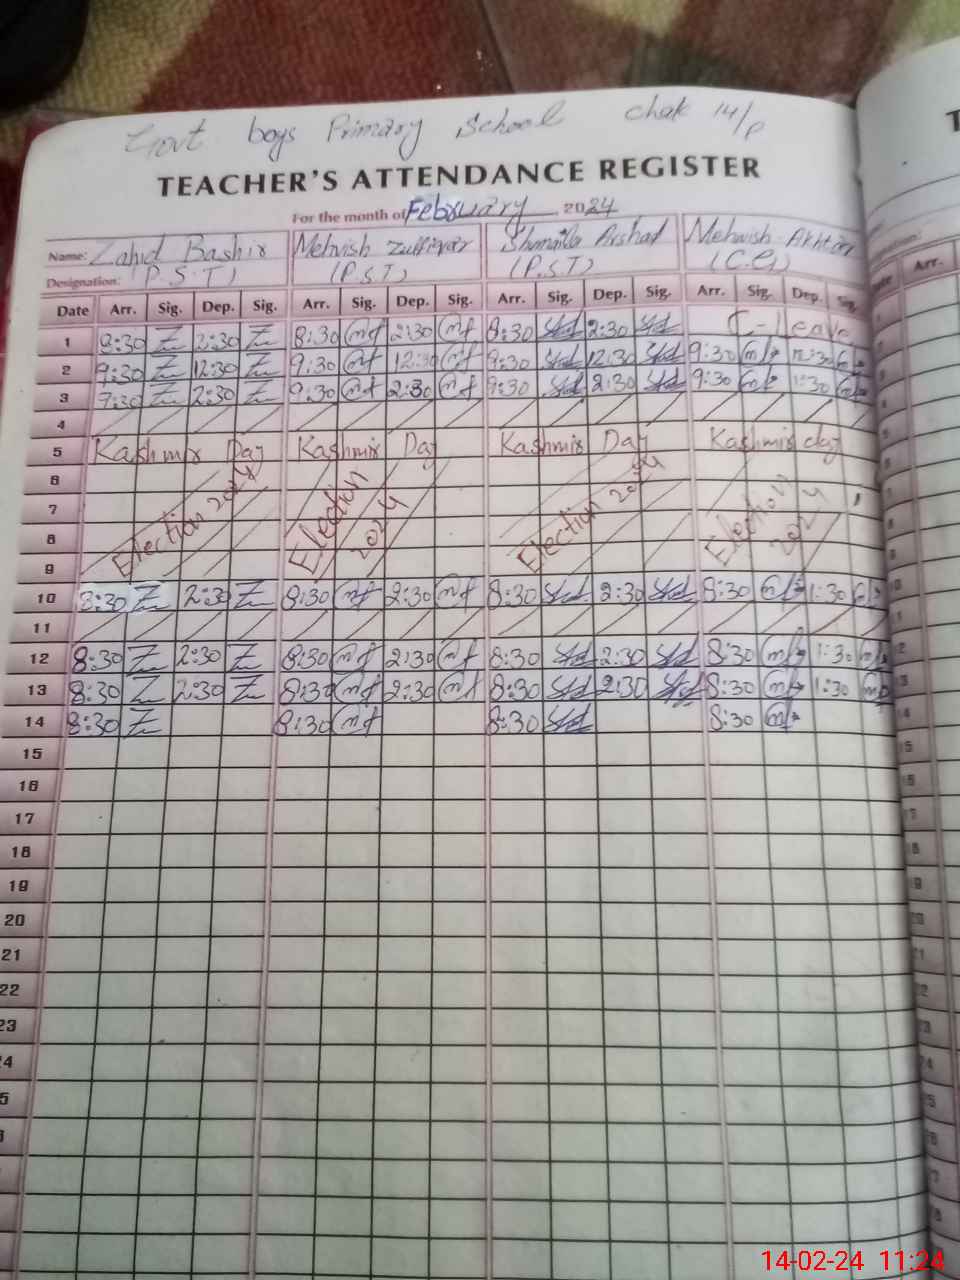 Govt boys Primary School chak 14/p
TEACHER'S ATTENDANCE REGISTER
For the month of February 2024
Name: Zahid Bashir Mehwish Zulfiqar Shmaila Arshad Mehwish Akhtar
Designation: (P.S.T) (P.S.T) (P.S.T)
Date Arr. Sig. Dep. Sig. Arr. Sig. Dep. Sig. Arr. Sig. Dep. Sig. Arr. Sig. Dep. Sig. Arr.
1 8:30 2:30 8:30 2:30 8:30 2:30 C-leave
2 9:30 12:30 9:30 12:30 9:30 12:30 9:30 12:30
3 9:30 2:30 9:30 2:30 9:30 2:30 9:30 1:30
4
5 Kashmir Day Kashmir Day Kashmir Day Kashmir day
6
7 Election 2024 Election 2024 Election 2024 Election 2024
8
9
10 8:30 2:30 8:30 2:30 8:30 2:30 8:30 1:30
11
12 8:30 2:30 8:30 2:30 8:30 2:30 8:30 1:30
13 8:30 2:30 8:30 2:30 8:30 2:30 8:30 1:30
14 8:30 8:30 8:30 8:30
15
16
17
18
19
20
21
22
23
14-02-24 11:24